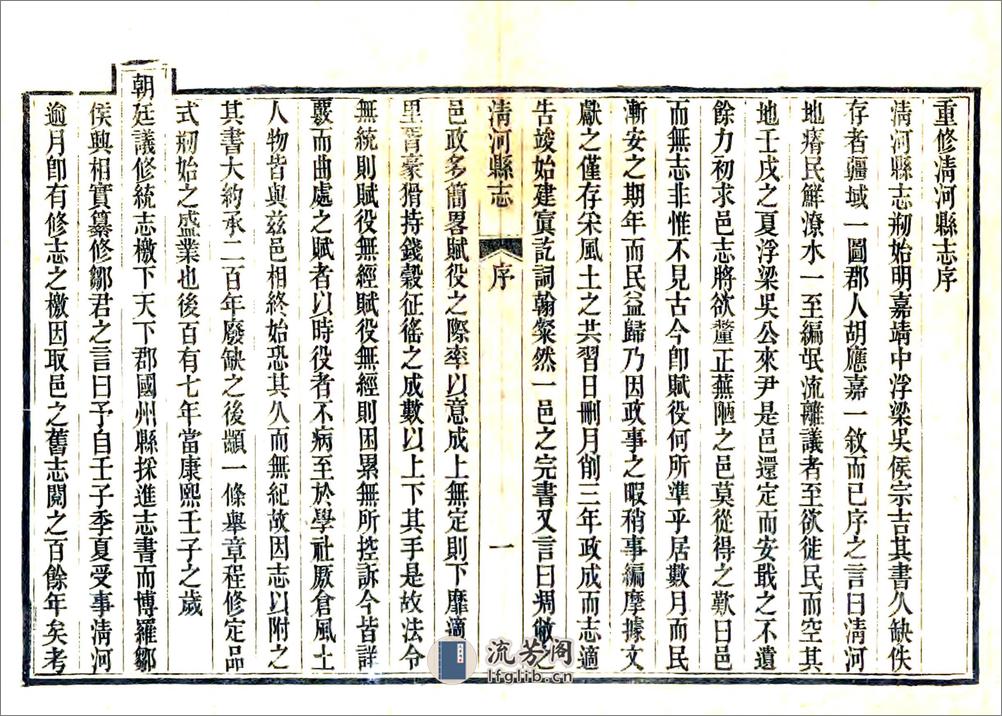 重修清河縣志序
清河縣志剏始明嘉靖中浮梁吳侯宗吉其書久缺佚
存者疆域一圖郡人胡應嘉一敘而已序之言曰清河
地瘠民鮮潦水一至編氓流離議者至欲徙民而空其
地壬戌之夏浮梁吳公來尹是邑還定而安戢之不遺
餘力初求邑志將欲釐正蕪陋之邑莫從得之歎曰邑
而無志非惟不見古今卽賦役何所準乎居數月而民
漸安之期年而民益歸乃因政事之暇稍事編摩據文
獻之僅存宋風土之共習日刪月削三年政成而志適
吿竣始建寘訖詞翰粲然一邑之完書又言曰凋敝之
清河縣志
序
一
邑政多簡畧賦役之際率以意成上無定則下靡適
里胥豪猾持錢穀征徭之成數以上下其手是故法令
無統則賦役無經賦役無經則困累無所控訴今皆詳
覈而曲處之賦者以時役者不病至於學社厫倉風土
人物皆與兹邑相終始恐其久而無紀故因志以附之
其書大約承二百年廢缺之後顓一條舉章程修定品
式剏始之盛業也後百有七年當康熙壬子之歲
朝廷議修統志檄下天下郡國州縣採進志書而博羅鄒
侯興相實纂修鄒君之言曰予自壬子季夏受事清河
逾月卽有修志之檄因取邑之舊志閱之百餘年矣考
流芳阁
lfglib.cn